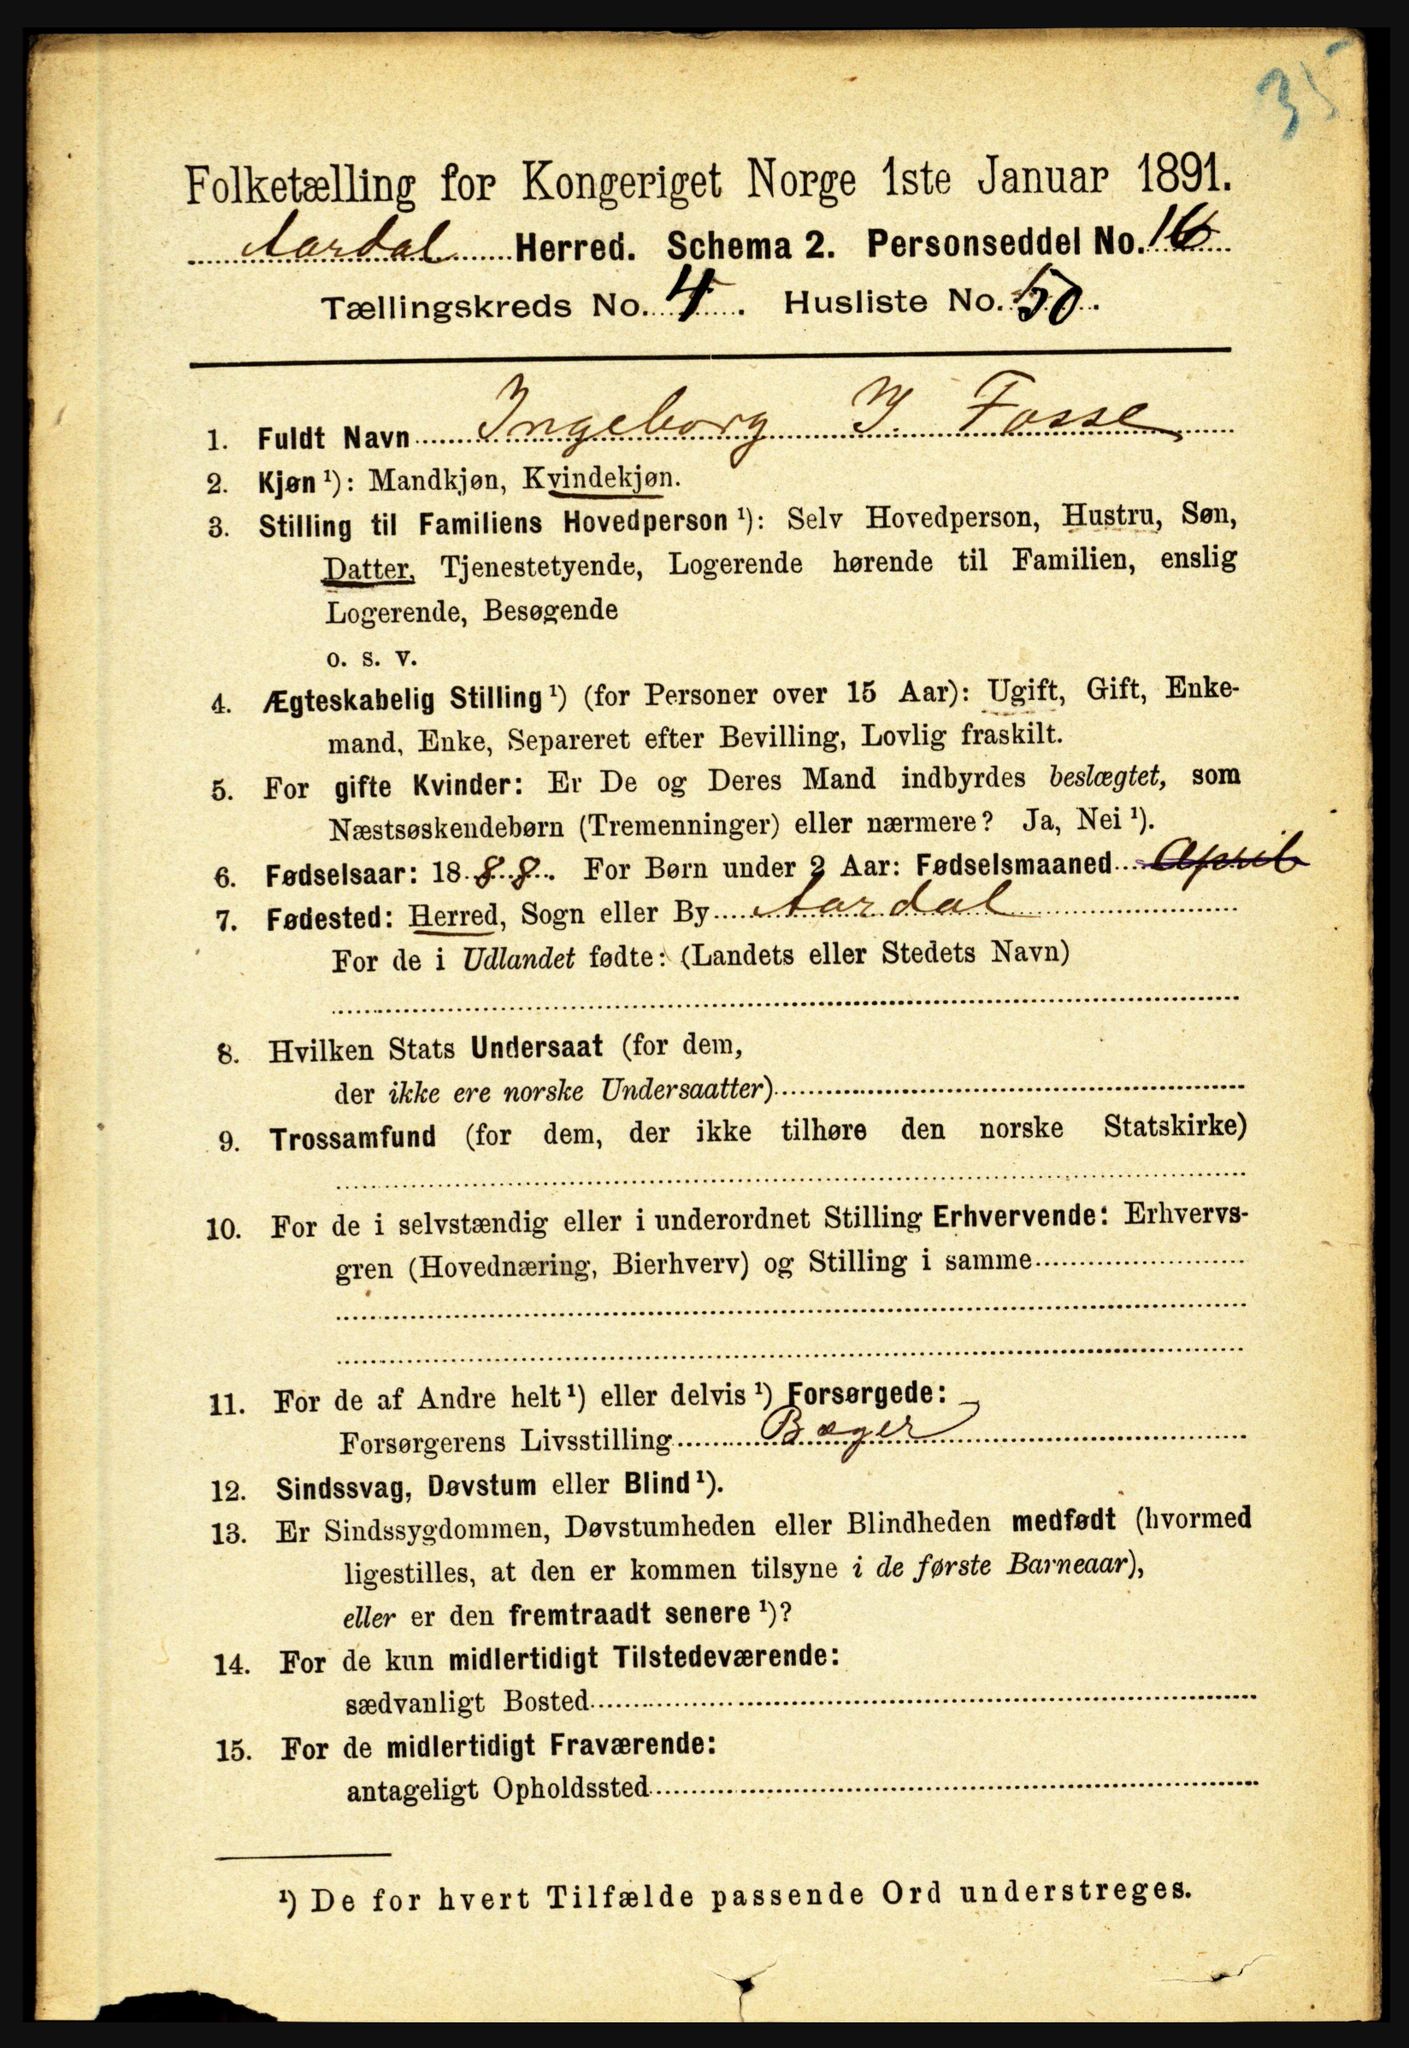 35
Folketælling for Kongeriget Norge 1ste Januar 1891.
Aardal Herred. Schema 2. Personseddel No. 16
Tællingskreds No. 4. Husliste No. 50.
1. Fuldt Navn Ingeborg I. Fosse
2. Kjøn ¹): Mandkjøn, Kvindekjøn.
3. Stilling til Familiens Hovedperson ¹): Selv Hovedperson, Hustru, Søn,
Datter, Tjenestetyende, Logerende hørende til Familien, enslig
Logerende, Besøgende
o. s. v.
4. Ægteskabelig Stilling ¹) (for Personer over 15 Aar): Ugift, Gift, Enke-
mand, Enke, Separeret efter Bevilling, Lovlig fraskilt.
5. For gifte Kvinder: Er De og Deres Mand indbyrdes beslægtet, som
Næstsøskendebørn (Tremenninger) eller nærmere? Ja, Nei ¹).
6. Fødselsaar: 1888. For Børn under 2 Aar: Fødselsmaaned April
7. Fødested: Herred, Sogn eller By Aardal
For de i Udlandet fødte: (Landets eller Stedets Navn)
8. Hvilken Stats Undersaat (for dem,
der ikke ere norske Undersaatter)
9. Trossamfund (for dem, der ikke tilhøre den norske Statskirke)
10. For de i selvstændig eller i underordnet Stilling Erhvervende: Erhvervs-
gren (Hovednæring, Bierhverv) og Stilling i samme
11. For de af Andre helt ¹) eller delvis ¹) Forsørgede:
Forsørgerens Livsstilling Bager
12. Sindssvag, Døvstum eller Blind ¹).
13. Er Sindssygdommen, Døvstumheden eller Blindheden medfødt (hvormed
ligestilles, at den er kommen tilsyne i de første Barneaar),
eller er den fremtraadt senere ¹)?
14. For de kun midlertidigt Tilstedeværende:
sædvanligt Bosted
15. For de midlertidigt Fraværende:
antageligt Opholdssted
¹) De for hvert Tilfælde passende Ord understreges.